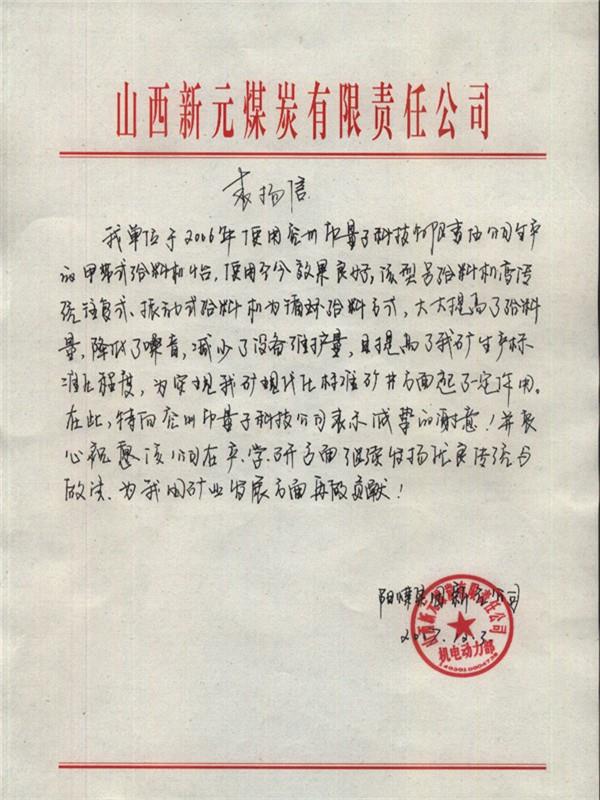 山西新元煤炭有限责任公司
表扬信
我单位于2006年使用兖州印量子科技有限责任公司生产
的甲带式给料机怡,使用至今效果良好,该型号给料机变传
统往复式、振动式给料机为循环给料方式,大大提高了给料
量,降低了噪音,减少了设备维护量,且提高了我矿生产标
准化程度,为实现我矿现代化标准矿井方面起了一定作用。
在此,特向兖州印量子科技公司表示诚挚的谢意!并衷
心祝愿该公司在产、学、研方面继续发扬优良传统与
做法、为我国矿业发展方面再做贡献!
阳煤集团新元公司
机电动力部